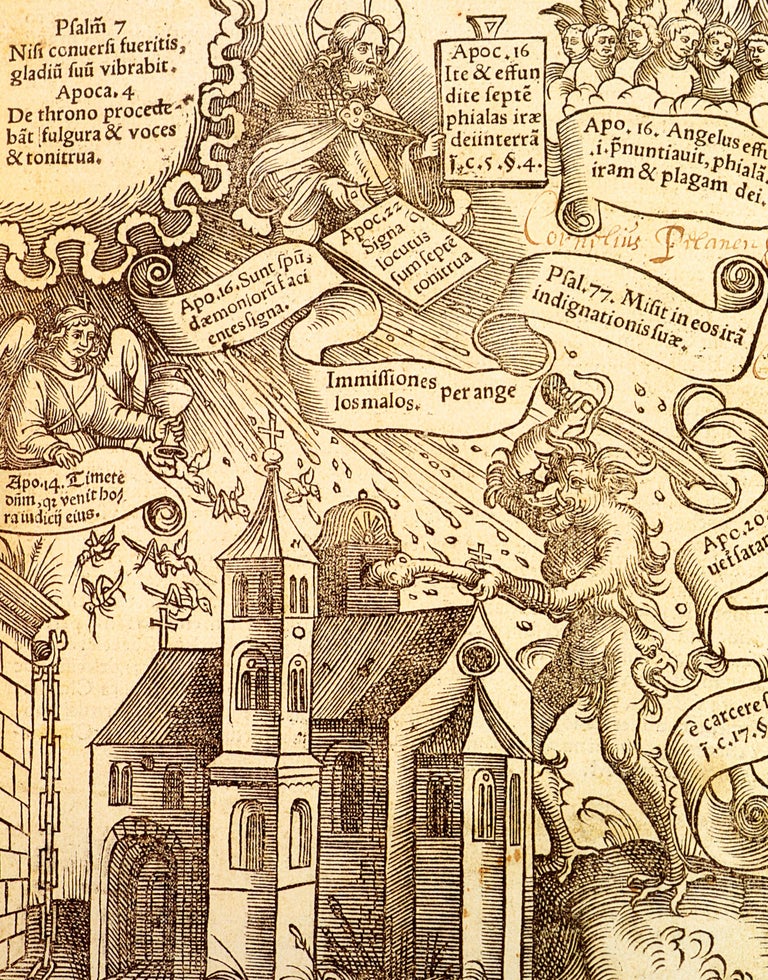 Psalm̃ 7
Nisi conuersi fueritis,
gladiũ suũ vibrabit.
Apoca. 4
De throno procede-
bãt fulgura & voces
& tonitrua.
Apoc. 16
Ite & effun
dite septẽ
phialas iræ
dei in terrã
j. c. 5. §. 4.
Apo. 16. Angelus effu
.i. p̃nuntiauit, phialã
iram & plagam dei.
Cornelius
Apoc. 22
Signa
locutus
sum septẽ
tonitrua
Apo. 16. Sunt spũ,
dæmoniorũ faci
entes signa.
Psal. 77. Misit in eos irã
indignationis suæ.
Immissiones per ange
los malos.
Apo. 14. Timete
dñm, qz venit ho
ra iudicij eius.
Apc. 20
satan
è carcere s
j. c. 17. §